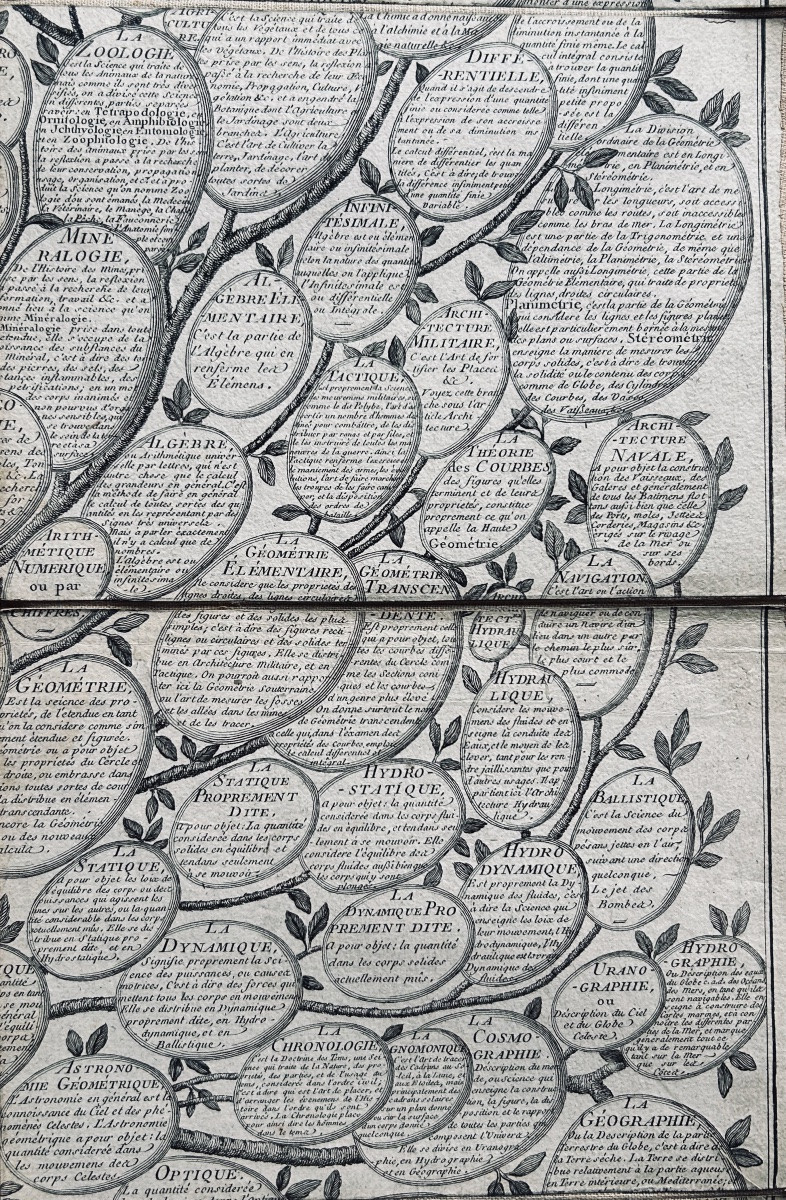 AGRI-
CULTU
RE.
LA
ZOOLOGIE,
est la Science qui traite de
tous les Animaux de la nature
mais comme ils sont très diver
sifiés, on a divisé cette Science
en differents parties separées
savoir en Tétrapodologie, en
Ornitologie, en Amphibiologie
en Ichthyologie en Entomologie
et en Zoophitologie. De l'his
toire des animaux prise par les
la reflexion a passé à la recherche
de leur conservation, propagation
usage, organisation, et c'est a pro
duit la Science qu'on nomme Zoo
logie d'ou sont émanés, la Medecine
la Véterinaire, le Manège, la Chasse
la Pêche, la Fauconnerie
est la Science qui traite de
tous les Végétaux et de tout ce
qui a un rapport immédiat avec
les végétaux. De l'Histoire des Plan
te prise par les sens, la réflexion
passé à la recherche de leur Œco
nomie, Propagation, Culture, Vé
gétation &c. et a engendré la
Botanique dont l'Agriculture
le Jardinage sont deux
branches. L'Agriculture
C'est l'art de cultiver la
terre, Jardinage, l'art de
planter, de décorer
toutes sortes de
Jardins
La Chimie a donné naissance
l'alchimie et a la Ma
gie naturelle &c.
DIFFE-
RENTIELLE,
Quand il s'agit de descendre
de l'expression d'une quantité
finie ou considérée comme telle
à l'expression de son accroisse
ment ou de sa diminution ins
tantanée.
Le calcul différentiel, c'est la ma
nière de différentier les quan
tités, C'est à dire, de trouver
la différence infiniment petite
d'une quantité finie
variable.
monter d'une expression
de l'accroissement ou de la
diminution instantanée à la
quantité finie même. Le cal
cul intégral consiste
a trouver la quantité
finie, dont une quan
tité infiniment
petite propo
sée est la
différen
tielle
La Division
ordinaire de la Géométrie
élémentaire est en Longi
métrie, en Planimétrie, et en
Stéréométrie.
Longimétrie, c'est l'art de me
surer les longueurs, soit accessi
bles comme les routes, soit inaccessibles
comme les bras de Mer. La Longimétrie
est une partie de la Trigonométrie, et une
dépendance de la Géométrie, de même que
l'altimétrie, la Planimétrie, la Stéréométrie
On appelle aussi Longimétrie, cette partie de la
Géométrie Elémentaire, qui traite de propriétés
des lignes, droites circulaires.
Planimétrie, c'est la partie de la Géométrie
qui considère les lignes et les figures planes
elle est particulierement bornée à la mesure
des plans ou surfaces. Stéréométrie
enseigne la maniere de mesurer les
corps solides, c'est à dire de trouver
la solidité ou le contenu des corps
comme de Globe, des Cylindres
des Courbes, des Vases,
les Vaisseaux, &c.
MINE
RALOGIE,
De l'Histoire des Mines, pri
se par les sens, la reflexion
a passé à la recherche de leur
formation, travail &c. et a
donné lieu à la science qu'on
nomme Minéralogie.
Minéralogie prise dans toute
étendue, elle s'occupe de la
connoissance des substances du
Minéral, c'est à dire des ter
res, des pierres, des sels, des
substances inflammables, des
petrifications, en un mot
des corps inanimés et
non pourvus d'orga
nes sensibles, qui
se trouvent dans
le sein de la ter
re et a sa
surface
INFINI
TÉSIMALE,
Algebre est ou élémen
taire ou infinitésimale
selon la nature des quantités
auxquelles on l'applique
L'Infinitésimale est
ou différentielle
ou Intégrale.
AL-
GEBRE ELE
MENTAIRE,
C'est la partie de
l'Algèbre qui en
renferme les
Elémens.
ARCHI-
TECTURE
MILITAIRE,
C'est l'Art de for
tifier les Places
&c
Voyez, cette bran
che sous l'ar-
ticle Archi
tecture,
LA
TACTIQUE,
est proprement la Science
des mouvemens militaires,
comme le dit Polybe, l'art d'as
sortir un nombre d'hommes des
tiné pour combattre, de les dis
tribuer par rangs et par files, et
de les instruire de toutes les ma
nœuvres de la guerre. dans l'art
Tactique renferme l'exercice
le maniement des armes, les évo
lutions, l'art de faire marcher
les troupes, de les faire cam
per, et la disposition
des ordres de
bataille.
ALGÈBRE,
ou Arithmétique univer
selle par lettres, qui n'est
autre chose que le calcul
des grandeurs en général. C'est
la méthode de faire en général
le calcul de toutes sortes des qu
antités en les représentant par des
Signes très universels.
Mais à parler exactement
il n'y a calcul que de
nombres.
L'Algèbre est ou
élémentaire ou
infinitésima
le.
LA
THÉORIE
des COURBES
des figures qu'elles
terminent et de leurs
propriétés, constitue
proprement ce qu'on
appelle la Haute
Géométrie.
ARCHI-
TECTURE
NAVALE,
A pour objet la construc
tion des Vaisseaux, des
Galeres et généralement
de tous les Batimens flot
tans aussi bien que celle
des Ports, moles, Jettées
Corderies, Magasins &c
érigés sur le rivage
de la Mer ou
sur ses
bords.
ARITH-
METIQUE
NUMERIQUE,
ou par
CHIFFRES,
LA
GÉOMÉTRIE
ELÉMENTAIRE,
Ne considère que les proprietés des
lignes droites, des lignes circulaires
des figures et des solides les plus
simples, c'est à dire des figures recti
lignes ou circulaires et des solides ter
minés par ces figures. Elle se distri
bue en Architecture Militaire, et en
Tactique. On pouroit aussi rappor
ter ici la Géométrie Souterraine
ou l'art de mesurer les fosses
et les allées dans les mines
et de les tracer.
LA
GÉOMÉTRIE
TRANSCEN
DENTE
Est proprement celle
qui a pour objet, tou
tes les courbes diffé-
rentes du Cercle com
me les Sections coni
ques et les courbes
d'un genre plus élevé
On donne surtout le nom
de Géométrie transcendante
celle qui, dans l'examen des
propriétés des Courbes, emploie
le calcul différentiel et
intégral.
LA
NAVIGATION,
C'est l'art ou l'action
de naviguer ou de con
duire un Navire d'un
lieu dans un autre par
le chemin le plus sûr,
le plus court et le
plus commode.
ARCHI
TECT.
HYDRAU
LIQUE,
HYDRAU
LIQUE,
Considere les mouve
mens des fluides et en
seigne la conduite des
Eaux, et le moyen de les
élever, tant pour les ren
dre jaillissantes que pour
d'autres usages. Il ap
partient ici l'Archi
tecture Hydrau
lique.
LA
GÉOMÉTRIE,
Est la science des pro-
prietés, de l'étendue en tant
qu'on la considère comme sim
plement étendue et figurée.
Géométrie ou a pour objet
les propriétés du Cercle
droite, ou embrasse dans
toutes sortes de cour
la distribue en élémen-
transcendante.
encore la Géométrie
ou des nouveaux
calculs
LA
STATIQUE
PROPREMENT
DITE.
a pour objet: La quantité
considérée dans les corps
solides en équilibre et
tendans seulement
a se mouvoir.
HYDRO-
STATIQUE,
a pour objet: la quantité
considérée dans les corps flui
des en équilibre, et tendans seu
lement à se mouvoir. Elle
considère l'équilibre des
corps fluides aussi bien que
les corps qui y sont
plongés.
LA
BALLISTIQUE,
C'est la Science du
mouvement des corps
pesans jettés en l'air,
suivant une direction
quelconque,
Le jet des
Bombes.
LA
STATIQUE,
a pour objet les loix de
l'équilibre des corps ou des
puissances qui agissent les
unes sur les autres, ou la quan
tité considerable dans les corps
actuellement mûs. Elle se dis
tribue en Statique pro
prement dite, et en
Hydrostatique.
HYDRO
DYNAMIQUE,
Est proprement la Dy
namique des fluides, c'est
à dire la Science que
enseigne les loix de
leur mouvement, l'Hy
drodynamique, l'Hy
draulique est ou vrai
Dynamique des
fluides.
LA
DYNAMIQUE PRO
PREMENT DITE.
a pour objet: la quantité
dans les corps solides
actuellement mûs.
LA
DYNAMIQUE,
Signifie proprement la Sci
ence des puissances, ou causes
motrices, C'est à dire des forces qui
mettent tous les corps en mouvement
Elle se distribue en Dynamique
proprement dite, en Hydro-
dynamique, et en
Ballistique.
URANO
GRAPHIE,
ou
Description du Ciel
et du Globe
Céleste.
HYDRO-
GRAPHIE,
Ou Description des eaux
du Globe c.a.d. des Océans
des Mers, en tant qu'ils
sont navigables. Elle en
seigne à construire des
Cartes marines, et à con
noitre les différentes par
ties de la Mer, et marque
généralement tout ce
qu'il y a de remarquable
tant sur la Mer
que sur les
LA
CHRONOLOGIE,
C'est la Doctrine des Tems, une Sci
ence qui traite de la Nature, des pro
prietés, des parties, et de l'usage du
tems, considérés dans l'ordre civil,
c'est à dire qui est l'Art de placer, et
d'arranger les évenemens de l'His
toire dans l'ordre qu'ils sont
arrivés. La Chronologie place
pour ainsi dire les hommes
dans le tems.
LA
GNOMONIQUE
C'est l'Art de tracer
des Cadrans au So
leil, à la Lune, et
aux Etoiles, mais
principalement des
cadrans solaires
sur un plan donné
ou sur la surface
d'un corps donné
quelconque.
LA
COSMO
GRAPHIE,
Description du mon
de, ou science qui
enseigne la construc
tion, la figure, la dis
position et le rapport
de toutes les parties qui
composent l'Univers
Elle se divise en Uranogra
phie, en Hydrographie
et en Géographie.
ASTRONO
MIE GÉOMÉTRIQUE
L'Astronomie en général est la
connoissance du Ciel et des phé-
nomènes Celestes. L'Astronomie
géométrique a pour objet: la
quantité considérée dans
les mouvemens des
corps Celestes.
LA
GÉOGRAPHIE,
Ou la Description de la partie
terrestre du Globe, c'est à dire de
la Terre sèche. La Terre se distri
bue relativement à la partie aqueuse
en Terre intérieure, ou Mediterranée,
OPTIQUE.
La quantité considérée